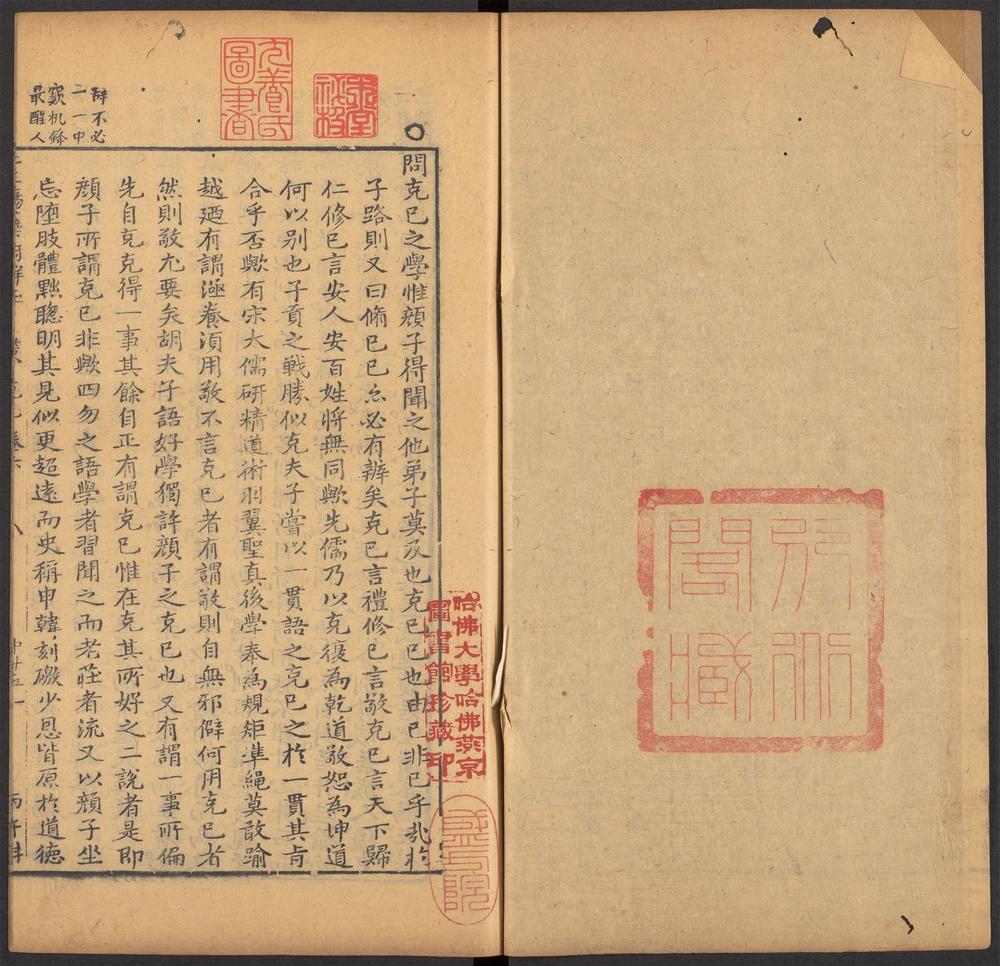 問克已之學惟顏子得聞之他弟子莫及也克已已也由已非已乎哉於
子路則又曰脩已已亦必有辨矣克已言禮修已言敬克已言天下歸
仁修已言安人安百姓將無同歟先儒乃以克復為乾道敬恕為坤道
何以別也子貢之戰勝似克夫子嘗以一貫語之克已之於一貫其肯
合乎否歟有宋大儒研精道術羽翼聖真後學奉為規矩準繩莫敢踰
越廼有謂涵養須用敬不言克已者有謂敬則自無邪僻何用克已者
然則敬尤要矣胡夫子語好學獨許顏子之克已也又有謂一事所偏
先自克克得一事其餘自正有謂克已惟在克其所好之二說者是即
顏子所謂克已非歟四勿之語學者習聞之而老莊者流又以顏子坐
忘墮肢體黜聰明其見似更超遠而史稱申韓刻礉少恩皆原於道德
辭不必
二一中
竅机鋒
最醒人
圖書
哈佛大學哈佛燕京
圖書館珍藏印